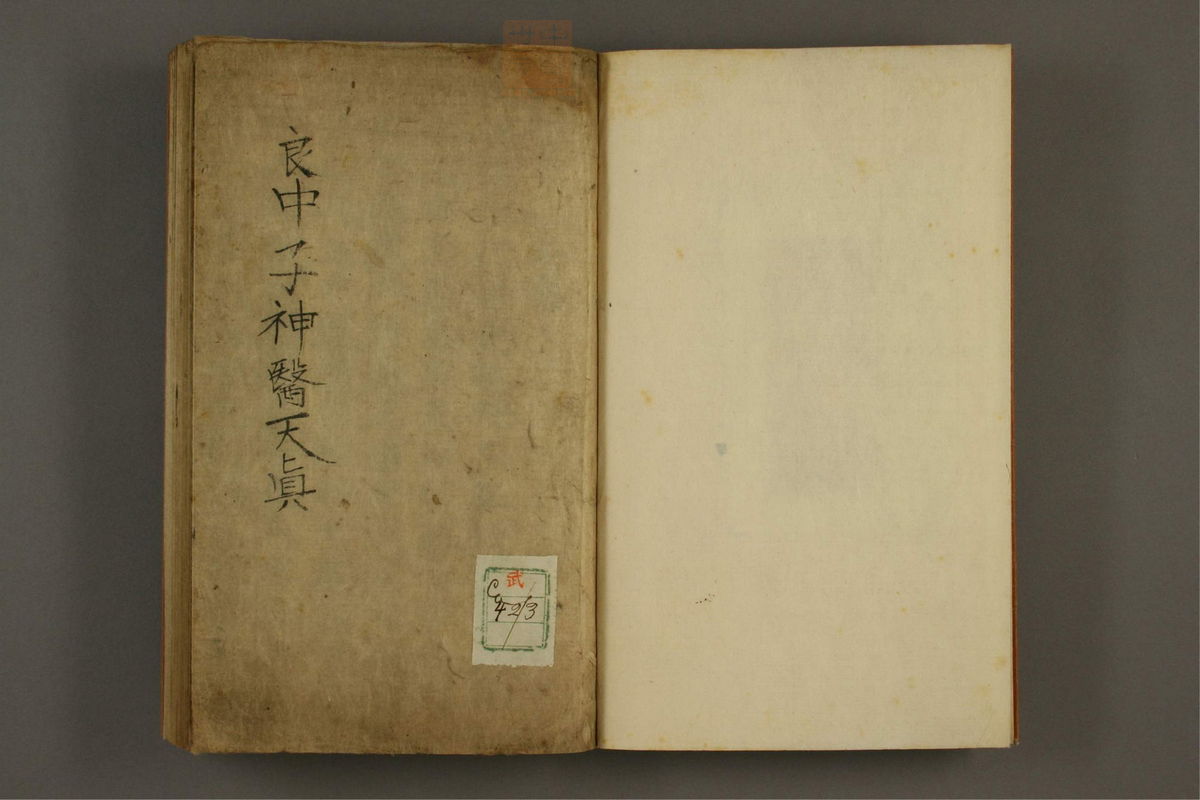 良中子神醫天眞
武
C
4213